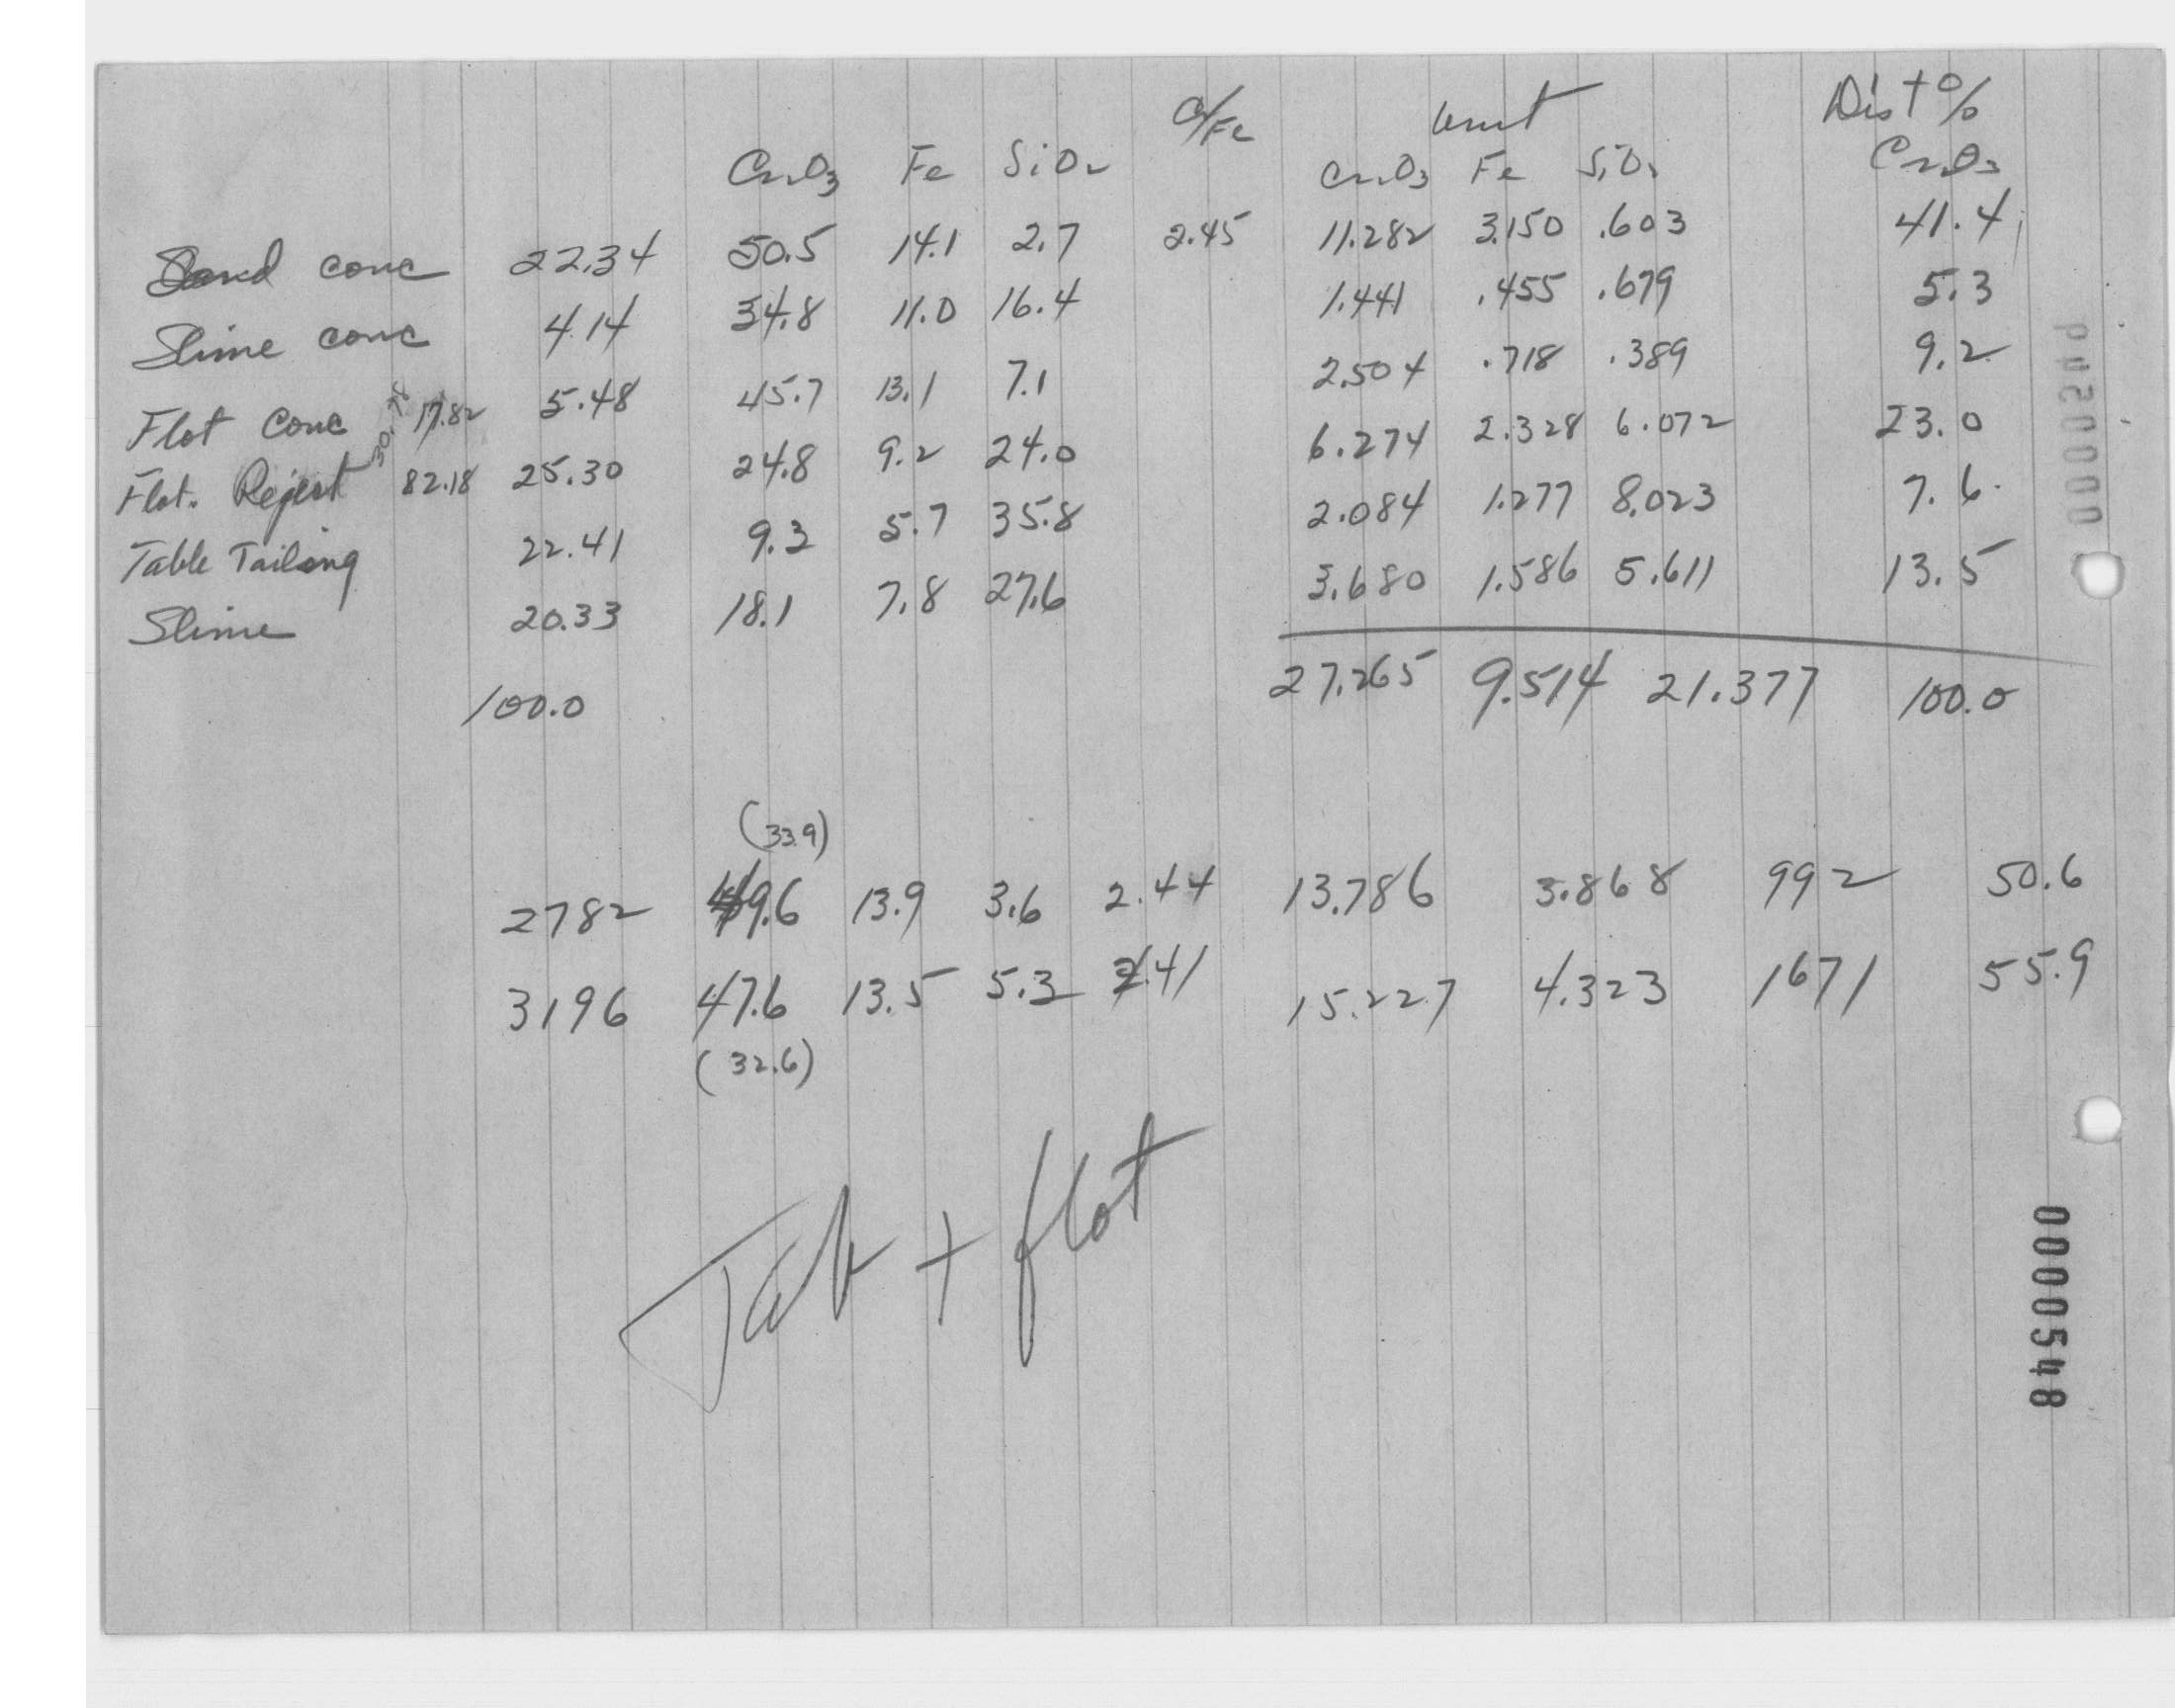 Cr/Fe Unit Dist %
Cr2O3 Fe SiO2 Cr2O3 Fe SiO2 Cr2O3
Sand conc 22.34 50.5 14.1 2.7 2.45 11.282 3.150 .603 41.4
Slime conc 4.14 34.8 11.0 16.4 1.441 .455 .679 5.3
Flot Conc 17.82 5.48 45.7 13.1 7.1 2.504 .718 .389 9.2
30.78
Flot. Reject 82.18 25.30 24.8 9.2 24.0 6.274 2.328 6.072 23.0
Table Tailing 22.41 9.3 5.7 35.8 2.084 1.277 8.023 7.6
Slime 20.33 18.1 7.8 27.6 3.680 1.586 5.611 13.5
100.0 27.265 9.514 21.377 100.0
(33.9)
2782 49.6 13.9 3.6 2.44 13.786 3.868 992 50.6
3196 47.6 13.5 5.3 2.41 15.227 4.323 1671 55.9
(32.6)
Tab + flot
0000548